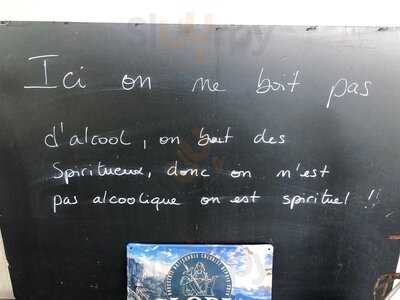 Ici on ne boit pas
d'alcool, on boit des
Spiritueux, donc on n'est
pas alcoolique on est spirituel !!